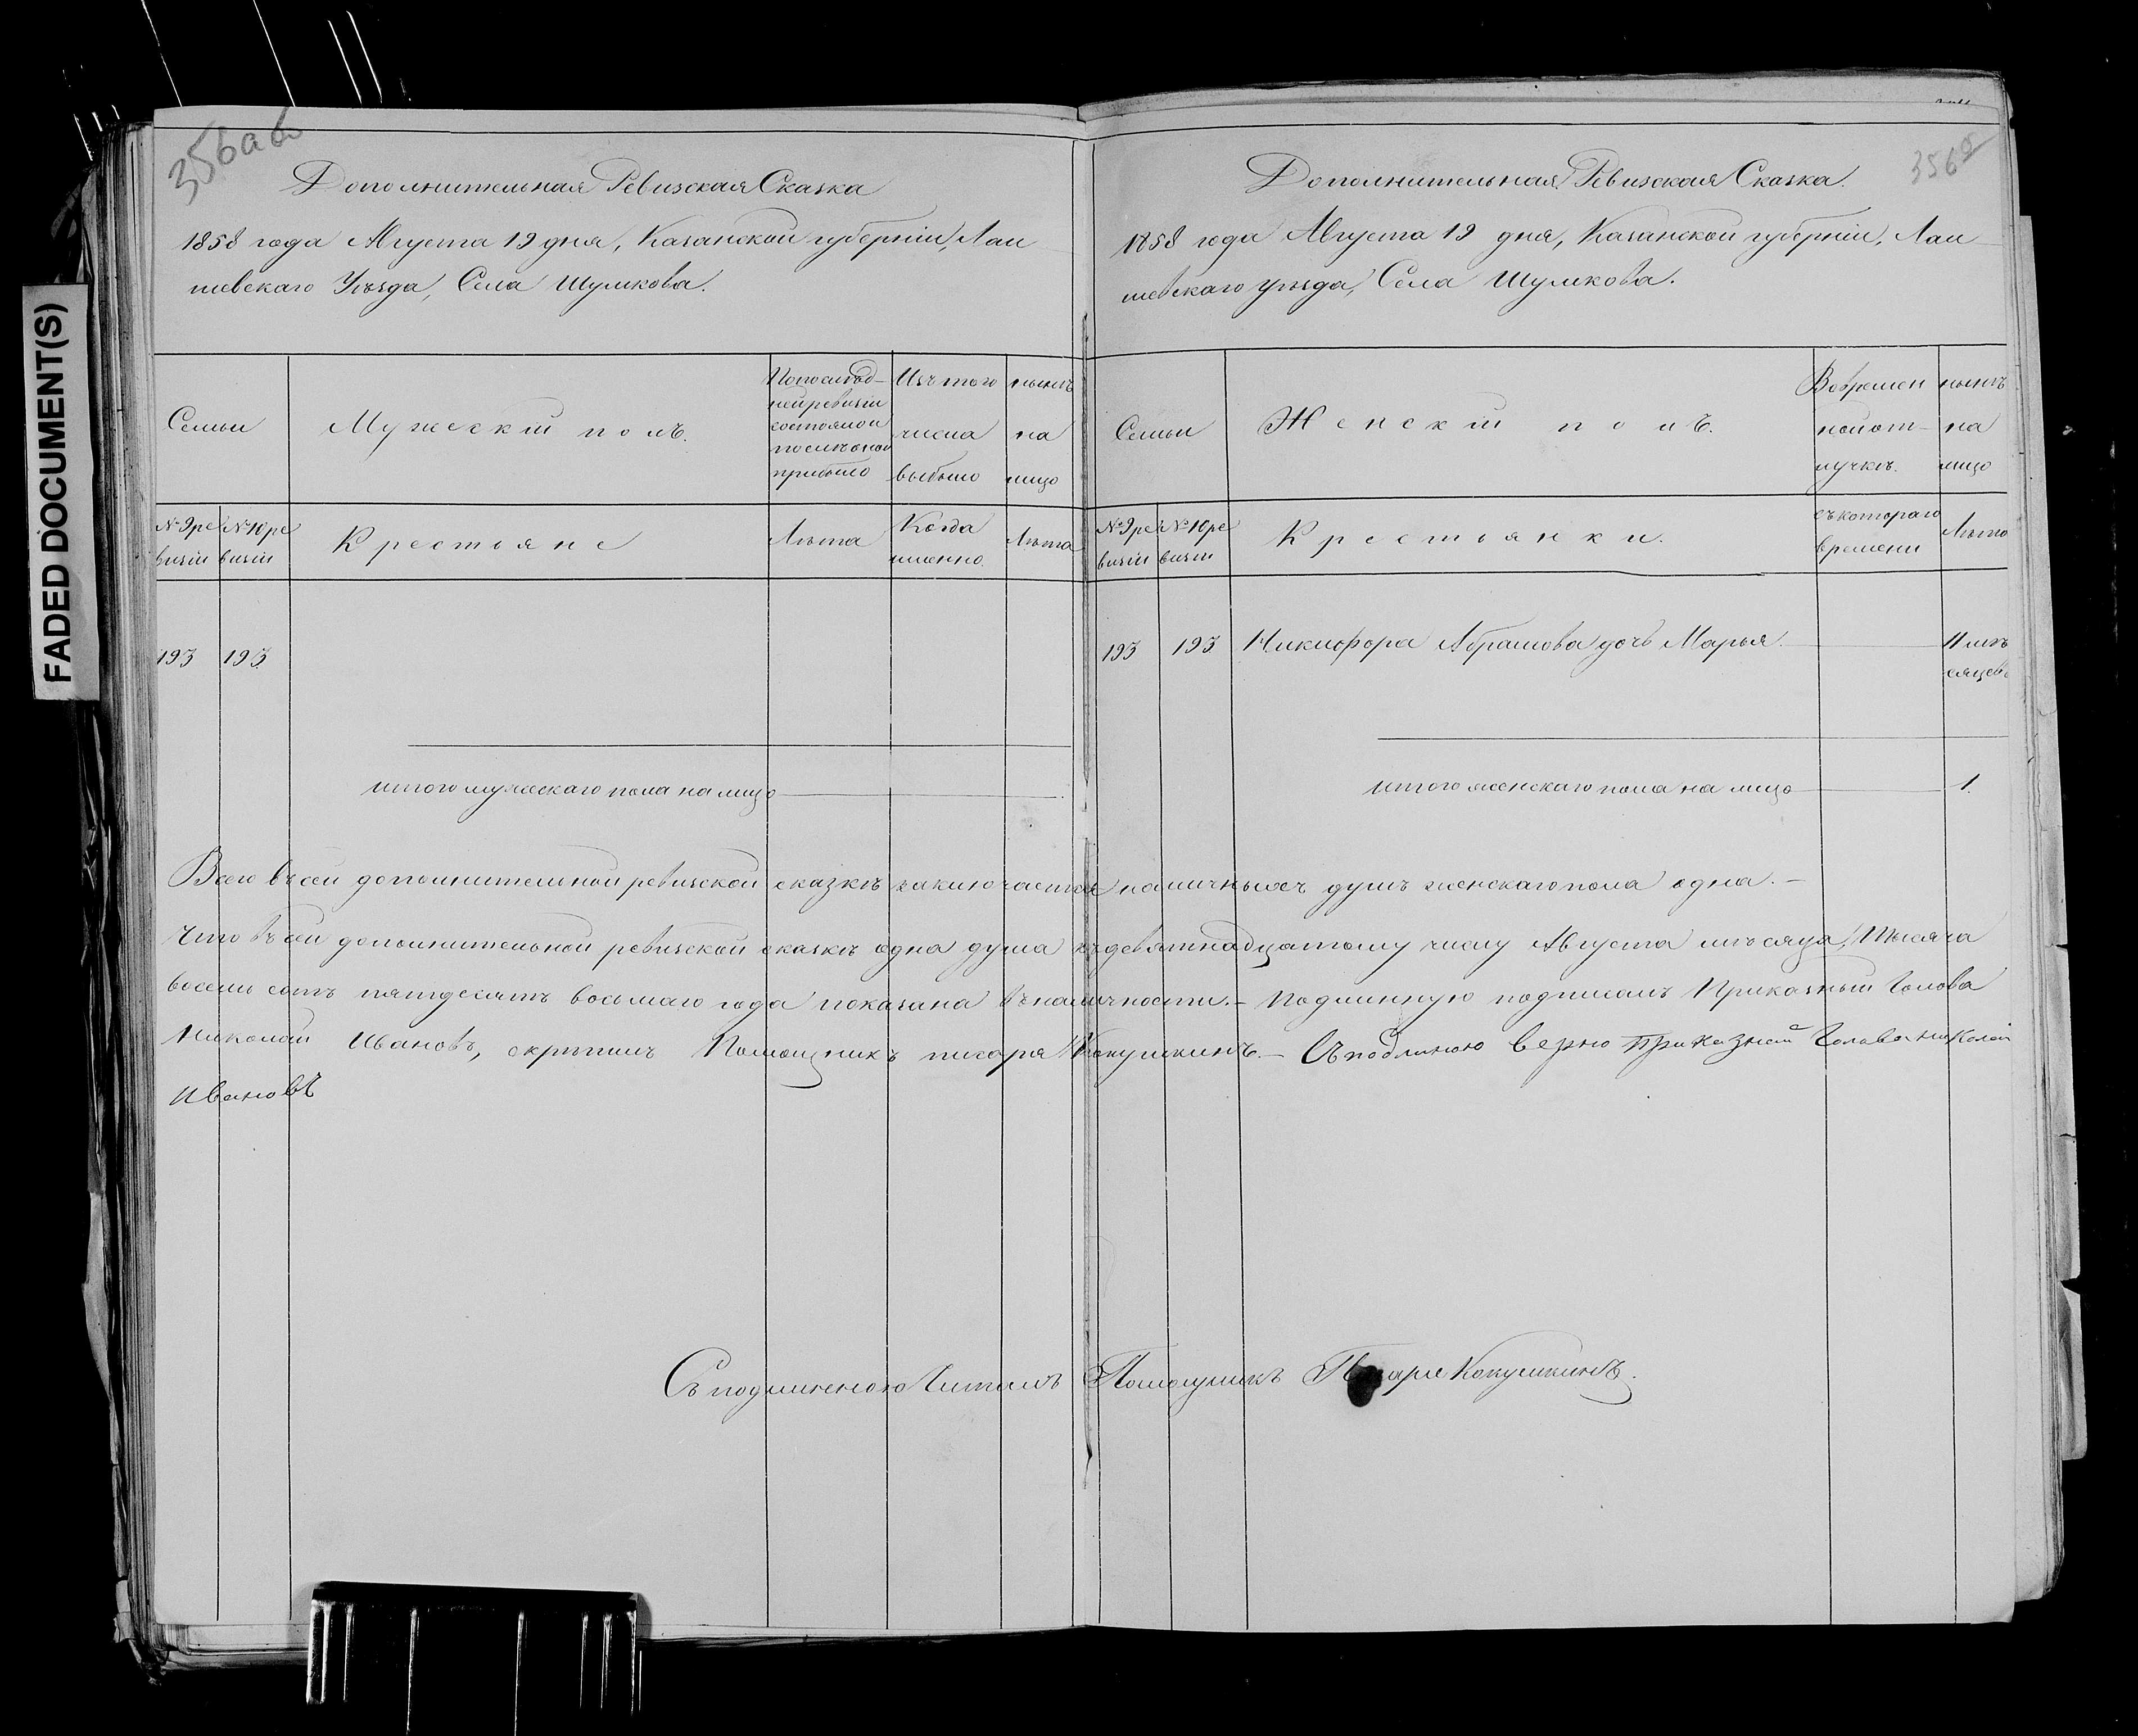 FADED DOCUMENT(S)
356 об
Дополнительная Ревизская Сказка
1858 года Августа 19 дня, Казанской губерніи, Лаи
шевскаго Уѣзда, Села Шумкова.
Семьи
Мужескій полъ.
По послѣд-
ней ревизіи
состояло и
послѣ оной
прибыло
Изъ того
числа
выбыло
нынѣ
на
лицо
№ 9 ре
визіи
№ 10 ре
визіи
Крестьяне
Лѣта
Когда
именно.
Лѣта
193 193
итого мужескаго пола на лицо
356
Дополнительная Ревизская Сказка.
1858 года Августа 19 дня, Казанской губерніи, Лаи
шевскаго уѣзда, Села Шумкова.
Семьи
Женскій полъ.
Во времен
ной от-
лучкѣ.
нынѣ
на
лицо
№ 9 ре
визіи
№ 10 ре
визіи
Крестьянки.
съ котораго
времени
Лѣта
193 193 Никифора Абрамова дочь Марья. 11 мѣ
сяцевъ
итого женскаго пола на лицо 1.
Всего въ сей дополнительной ревизской сказкѣ заключается наличныхъ душъ женскаго пола одна. –
Что въ сей дополнительной ревизской сказкѣ одна душа къ девятнадцатому числу Августа мѣсяца, Тысяча
восемь сотъ пятдесятъ восьмаго года показана въ наличности. – Подлинную подписалъ Приказный Голова
Николай Ивановъ, скрѣпилъ Помощникъ писаря Кокушкинъ. – Съ подлиною верно приказной Голова николай
ивановъ
Съ подлинною Читалъ Помощникъ Писаря Кокушкинъ.